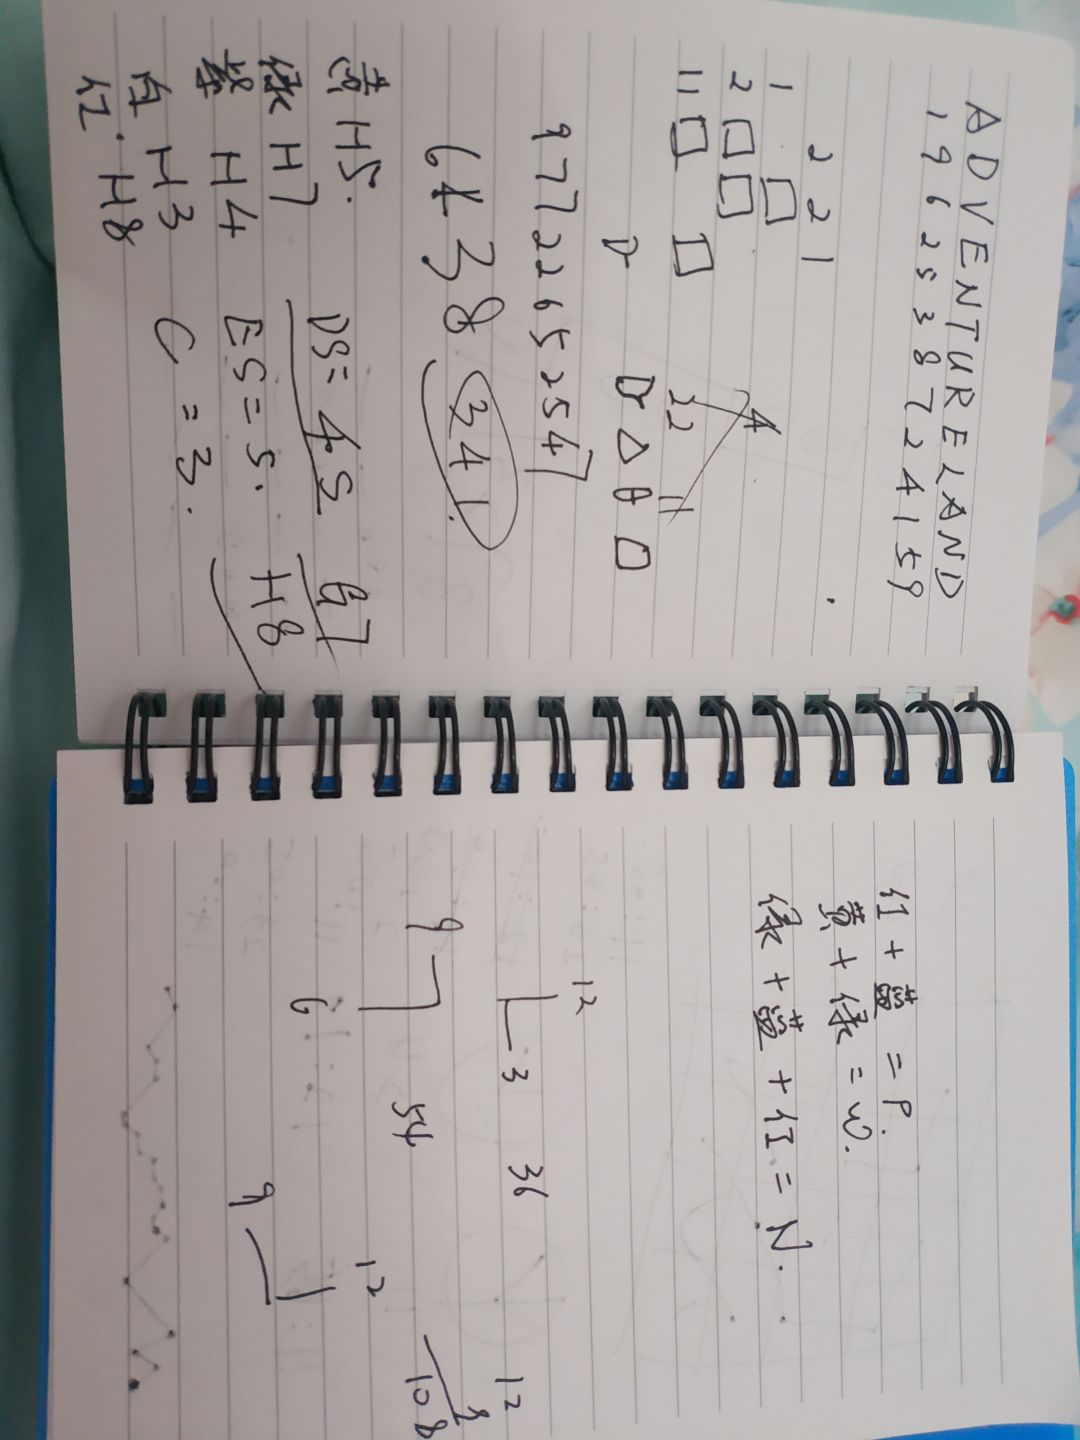 ADVENTURELAND
1962538724159
2 2 1
1
2
11
4
22 11
D D
977226525 4
6438 341.
黄 H5.
绿 H7
紫 H4
白 H3
红. H8
DS= 4S G7
ES=5. H8
C = 3.
红+蓝 = P.
黄+绿 = W.
绿+蓝+红 = N.
12
3 36
9
6 54
12
9
12
9
108